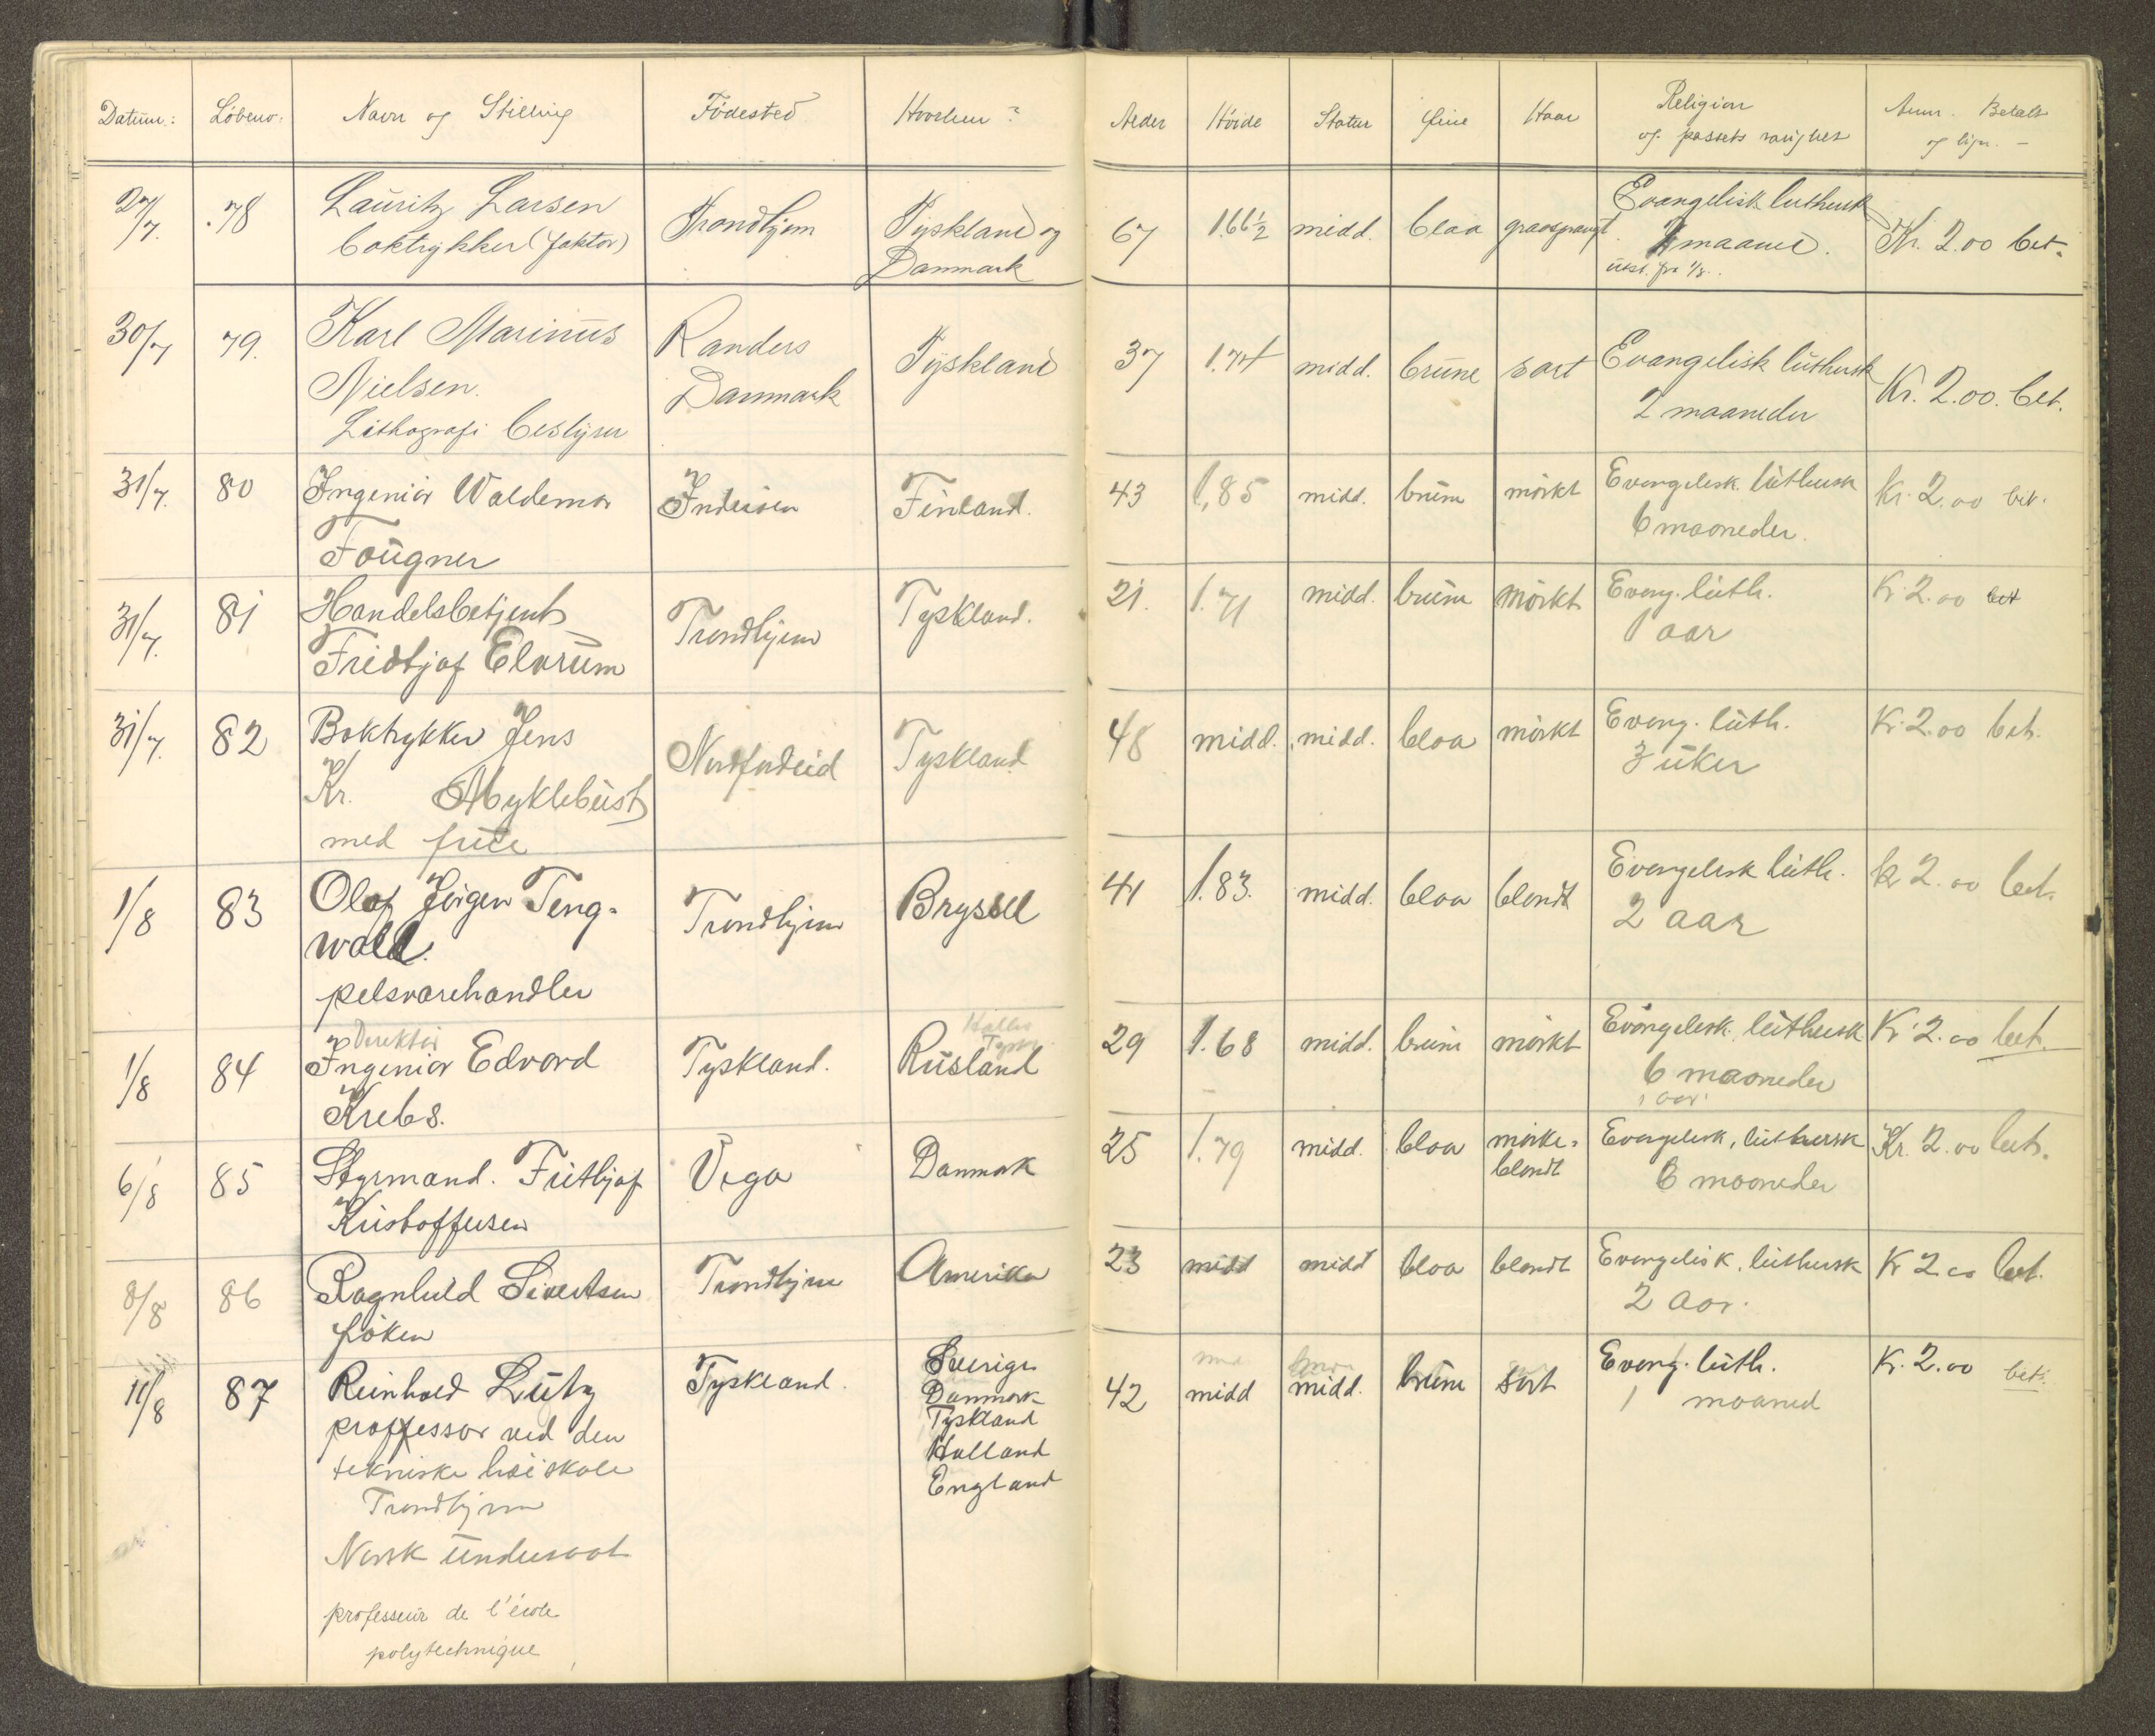 Datum.: Løbeno: Navn og Stilling Fødested Hvorhen? Alder Høide Statur Øine Haar Religion og passets varighet Anm. Betalt og lign. -
27/7. 78 Lauritz Larsen Trondhjem Tyskland og 67 1.66½ midd. blaa graasprængt Evangelisk luthersk Kr. 2.00 bet.
boktrykker (faktor) Danmark maaned.
utst. fra 1/8.
30/7 79. Karl Marinus Randers Tyskland 37 1.74 midd. brune sort Evangelisk luthersk Kr. 2.00. bet.
Nielsen. Danmark 2 maaneder
Lithografi bestyrer
31/7. 80 Ingeniør Waldemar Inderøen Finland. 43 1,85 midd. brune mørkt Evangelisk luthersk Kr. 2.00 bet.
Fougner 6 maaneder.
31/7. 81 Handelsbetjent Trondhjem Tyskland. 21. 1.71 midd. brune mørkt Evang. luth. Kr. 2.00 bet
Fridtjof Elvrum 1 aar
31/7. 82 Boktrykker Jens Nordfjordeid Tyskland 48 midd. midd. blaa mørkt Evang. luth. Kr. 2.00 bet.
Kr. Myklebust 3 uker
med frue
1/8 83 Olaf Jörgen Teng- Trondhjem Bryssel 41 1.83. midd. blaa blondt Evangelisk luth. Kr 2.00 bet.
wall. 2 aar
pelsvarehandler
Direktör
1/8 84 Ingeniør Edvard Tyskland. Rusland 29 1.68 midd. brune mørkt Evangelisk luthersk Kr. 2.00 bet.
Krebs. 6 maaneder
1 aar
6/8 85 Styrmand. Frithjof Vega Danmark 25 1.79 midd. blaa mørke- Evangelisk, luthersk Kr. 2.00 bet.
Kristoffersen blondt 6 maaneder
8/8 86 Ragnhild Sivertsen Trondhjem Amerika 23 midd midd blaa blondt Evangelisk, luthersk Kr 2.00 bet.
frøken 2 aar.
11/8 87 Reinhold Lutz Tyskland. Sverige 42 midd midd. brune sort Evang. luth. Kr. 2.00 bet.
proffessor ved den Danmark 1 maaned
tekniske høiskole Tyskland
Trondhjem Holland
Norsk undersaat England
professeur de l'école
polytechnique